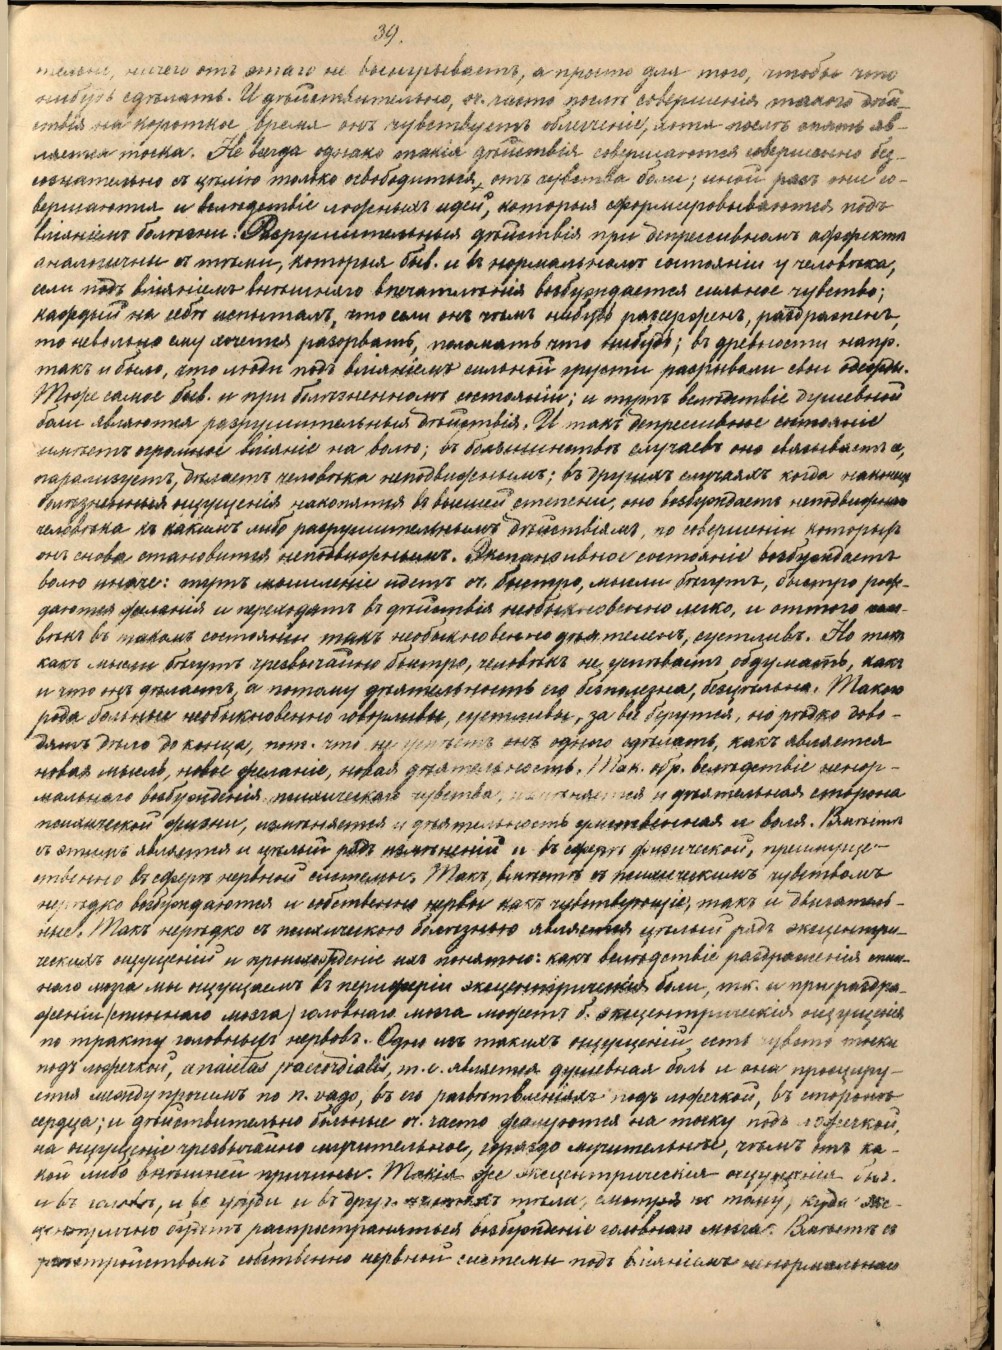 39.
ничего отъ этаго не выигрываетъ, а просто для того, чтобы что
нибудь сдѣлать. И дѣйствительно, оч. часто послѣ совершенія такого дѣй-
ствія на короткое время онъ чувствуетъ облегченіе, хотя послѣ опять яв-
ляется тоска. Не всегда однако такія дѣйствія совершаются совершенно без-
сознательно съ цѣлію только освободиться отъ чувства боли; иной разъ они со-
вершаются и вслѣдствіе ложныхъ идей, которыя сформировываются подъ
вліяніемъ болѣзни. Разрушительныя дѣйствія при депрессивномъ аффектѣ
аналогичны съ тѣми, которыя быв. и въ нормальномъ состояніи у человѣка,
если подъ вліяніемъ внѣшняго впечатлѣнія возбуждается сильное чувство;
каждый на себѣ испыталъ, что если онъ чѣмъ нибудь разсерженъ, раздраженъ,
то невольно ему хочется разорвать, поломать что нибудь; въ древности напр.
такъ и было, что люди подъ вліяніемъ сильной грусти разрывали свои одежды.
Тоже самое быв. и при болѣзненномъ состояніи; и тутъ вслѣдствіе душевной
боли являются разрушительныя дѣйствія. И такъ депрессивное состояніе
имѣетъ огромное вліяніе на волю; въ большинствѣ случаевъ оно связываетъ ее,
парализуетъ, дѣлаетъ человѣка неподвижнымъ; въ другихъ случаяхъ когда наконецъ
болѣзненныя ощущенія накопятся въ высшей степени, оно возбуждаетъ неподвижнаго
человѣка къ какимъ либо разрушительнымъ дѣйствіямъ, по совершеніи которыхъ
онъ снова становится неподвижнымъ. Экспансивное состояніе возбуждаетъ
волю иначе: тутъ мышленіе идетъ оч. быстро, мысли бѣгутъ, быстро рож-
даются желанія и переходятъ въ дѣйствія необыкновенно легко, и оттого чело-
вѣкъ въ такомъ состояніи такъ необыкновенно дѣятеленъ, суетливъ. Но такъ
какъ мысли бѣгутъ чрезвычайно быстро, человѣкъ не успѣваетъ обдумать, какъ
и что онъ дѣлаетъ, а потому дѣятельность его безполезна, безцѣльна. Такого
рода больные необыкновенно говорливы, суетливы, за всё берутся, но рѣдко дово-
дятъ дѣло до конца, пот. что не успѣетъ онъ одного сдѣлать, какъ является
новая мысль, новое желаніе, новая дѣятельность. Так. обр. вслѣдствіе ненор-
мальнаго возбужденія психическаго чувства, измѣняется и дѣятельная сторона
психической жизни, измѣняется и дѣятельность умственная и воля. Вмѣстѣ
съ этимъ является и цѣлый рядъ измѣненій и въ сферѣ физической, преимуще-
ственно въ сферѣ нервной системы. Такъ, вмѣстѣ съ психическимъ чувствомъ
нерѣдко возбуждаются и собственно нервы какъ чувствующіе, такъ и двигатель-
ные. Такъ нерѣдко съ психическою болѣзнью является цѣлый рядъ эксцентри-
ческихъ ощущеній и происхожденіе ихъ понятно: какъ вслѣдствіе раздраженія спин-
наго мозга мы ощущаемъ въ периферіи эксцентрическія боли, т.к. и при раздра-
женіи (спиннаго мозга) головнаго мозга можетъ б. эксцентрическія ощущенія
по тракту головныхъ нервовъ. Одно изъ такихъ ощущеній есть чувство тоски
подъ ложечкой, anxietas praecordialis, т.е. является душевная боль и она проэциру-
ется между прочимъ по n. vago, въ его развѣтвленіяхъ подъ ложечкой, въ сторонѣ
сердца; и дѣйствительно больные оч. часто жалуются на тоску подъ ложечкой,
на ощущеніе чрезвычайно мучительное, гораздо мучительнѣе, чѣмъ отъ ка-
кой либо внѣшней причины. Такія же эксцентрическія ощущенія быв.
и въ головѣ, и въ груди и въ друг. частяхъ тѣла, смотря по тому, куда экс-
центрично будетъ распространяться возбужденіе головнаго мозга. Вмѣстѣ съ
разстройствомъ собственно нервной системы подъ вліяніемъ ненормальнаго